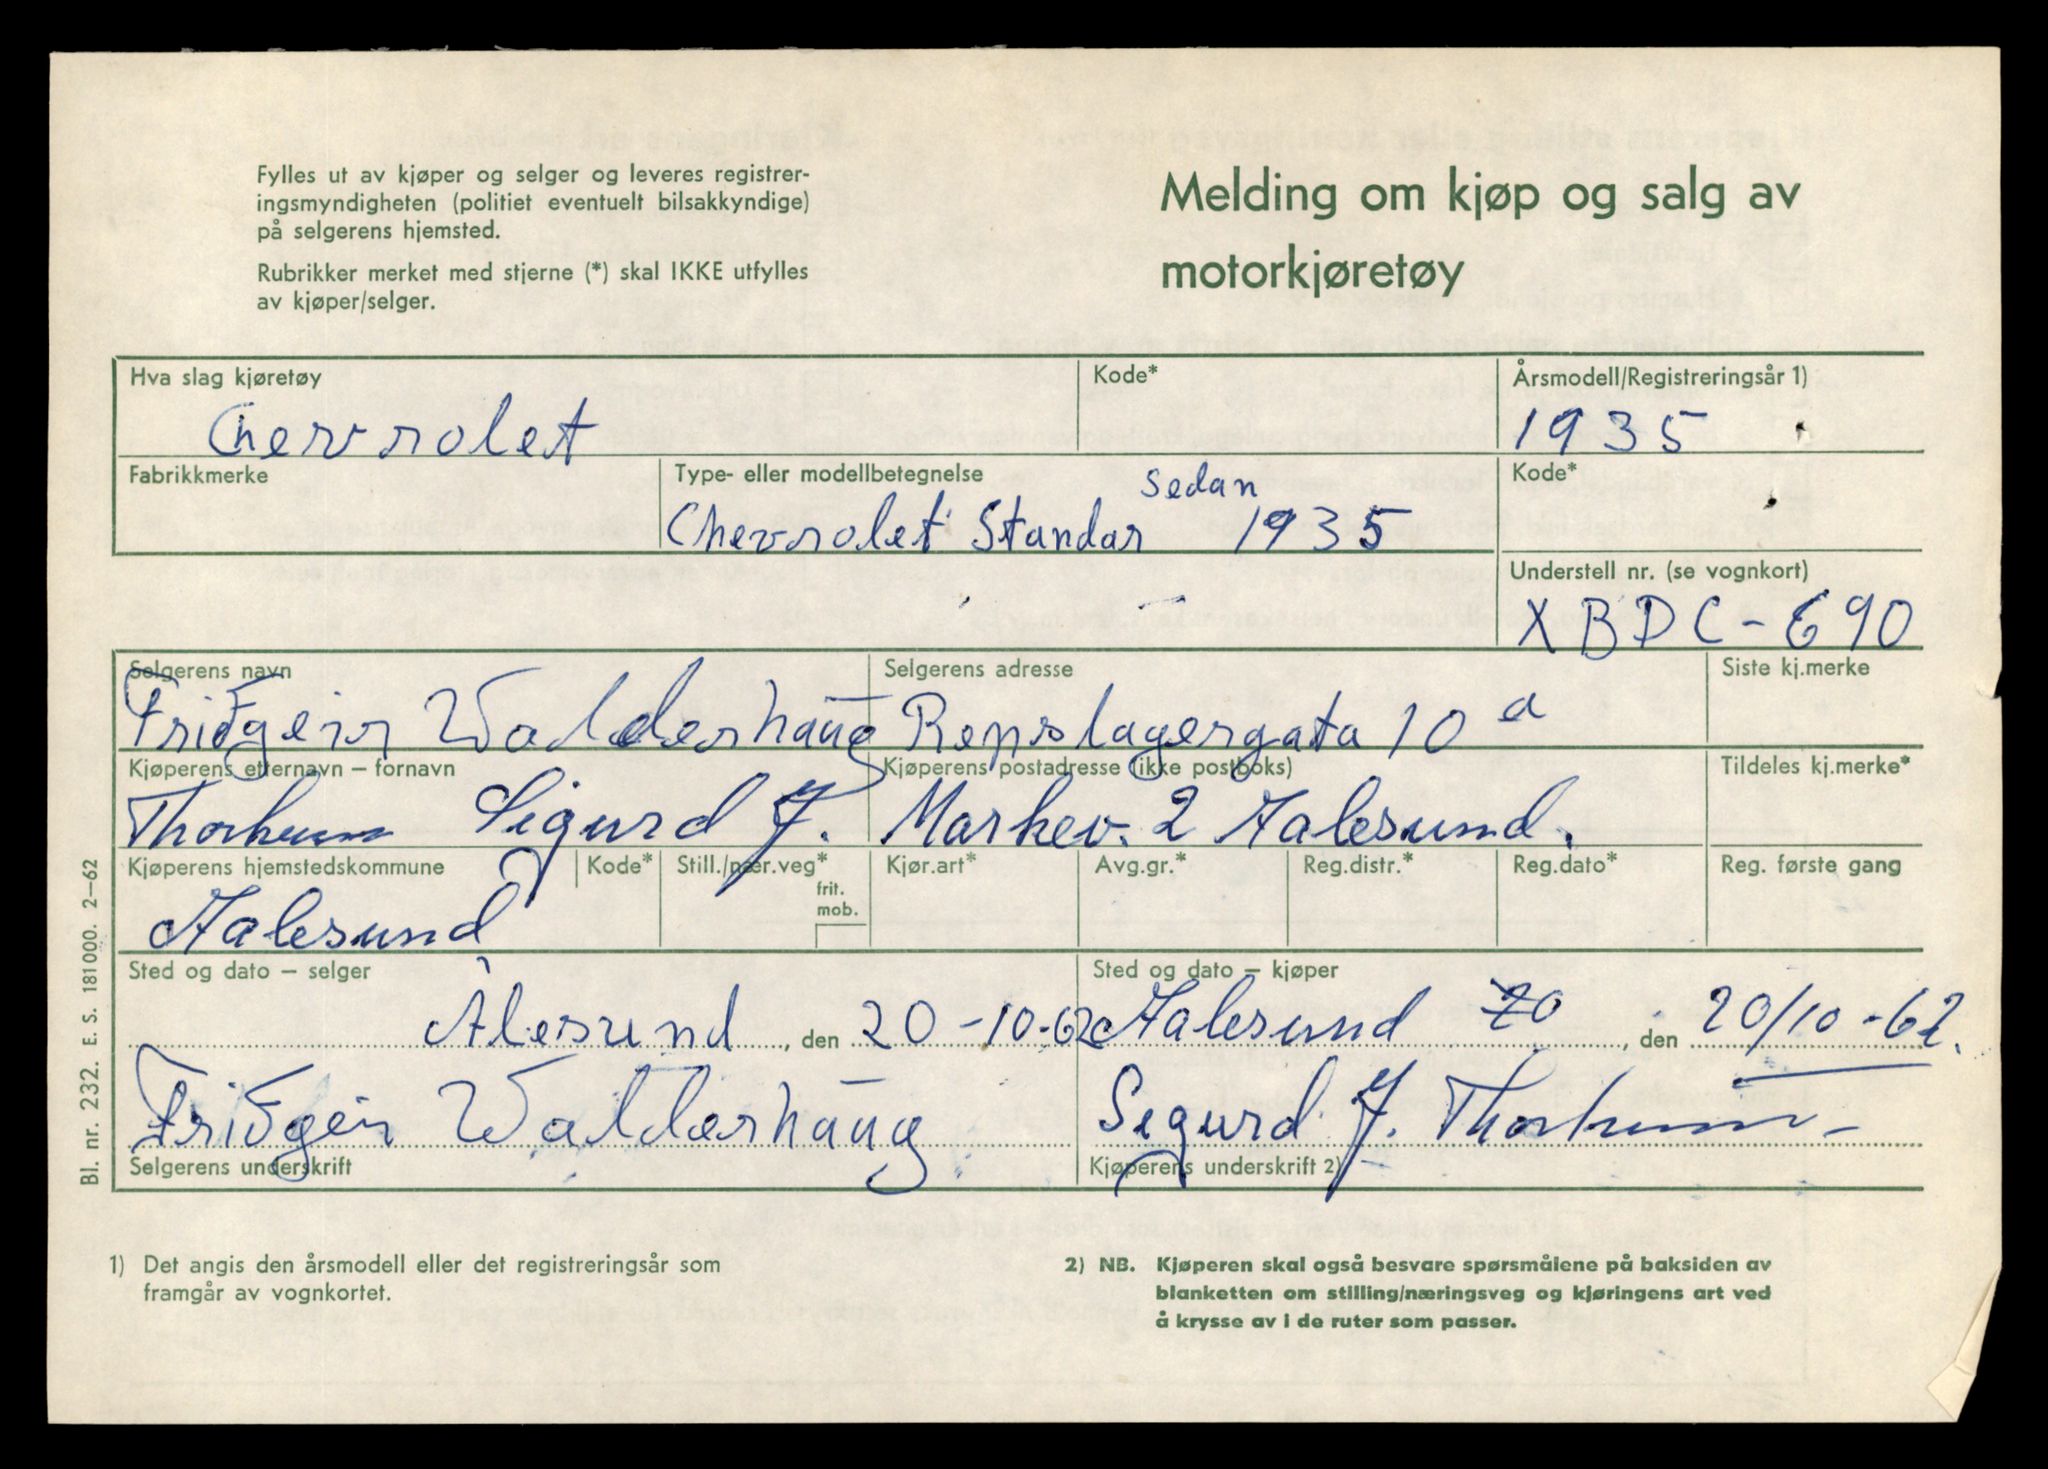 Fylles ut av kjøper og selger og leveres registrer-
ingsmyndigheten (politiet eventuelt bilsakkyndige)
på selgerens hjemsted.
Rubrikker merket med stjerne (*) skal IKKE utfylles
av kjøper/selger.
Melding om kjøp og salg av
motorkjøretøy
Hva slag kjøretøy
Kode*
Årsmodell/Registreringsår 1)
Chevrolet
1935
Fabrikkmerke
Type- eller modellbetegnelse
Kode*
Sedan
Chevrolet Standar 1935
Understell nr. (se vognkort)
XBDC-690
Selgerens navn
Selgerens adresse
Siste kj.merke
Fridgeir Walderhaug
Repslagergata 10 a
Kjøperens etternavn – fornavn
Kjøperens postadresse (ikke postboks)
Tildeles kj.merke*
Sigurd J.
Markev. 2 Aalesund.
Kjøperens hjemstedskommune
Kode*
Still./nær.veg*
frit.
mob.
Kjør.art*
Avg.gr.*
Reg.distr.*
Reg.dato*
Reg. første gang
Aalesund
Sted og dato – selger
Sted og dato – kjøper
Ålesund, den 20-10-62
Aalesund 20, den 20/10-62.
Fridgeir Walderhaug
Sigurd J.
Selgerens underskrift
Kjøperens underskrift 2)
Bl. nr. 232. E. S. 181000. 2–62
1) Det angis den årsmodell eller det registreringsår som
framgår av vognkortet.
2) NB. Kjøperen skal også besvare spørsmålene på baksiden av
blanketten om stilling/næringsveg og kjøringens art ved
å krysse av i de ruter som passer.